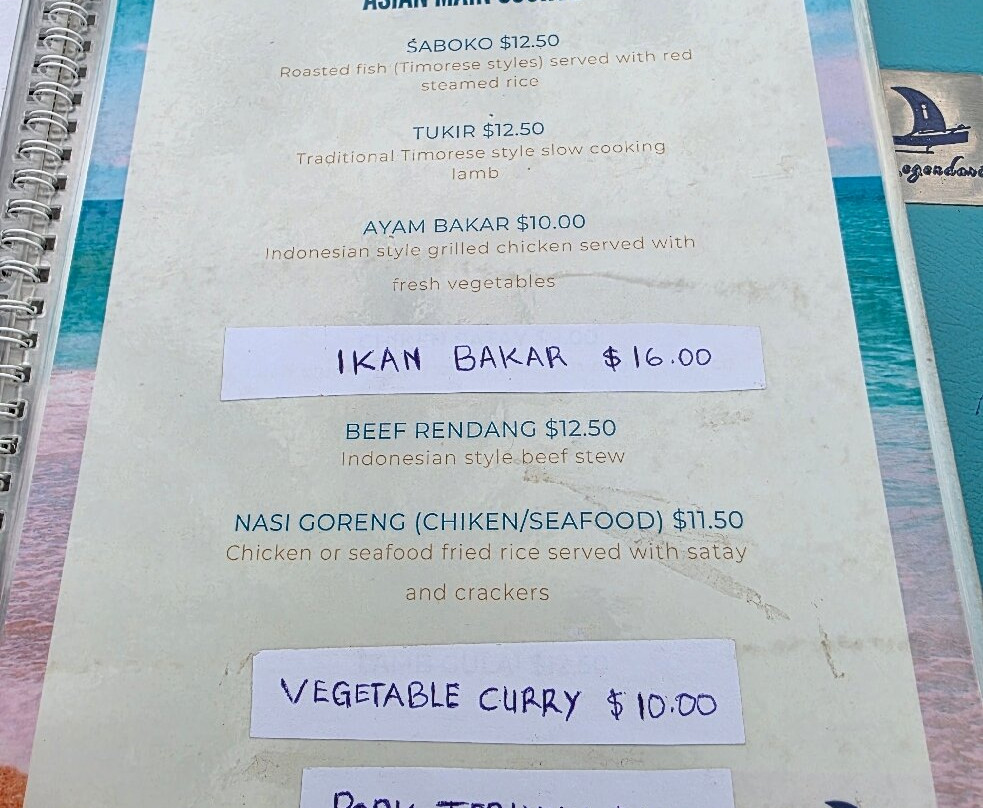 ASIAN MAIN
SABOKO $12.50
Roasted fish (Timorese styles) served with red
steamed rice
TUKIR $12.50
Traditional Timorese style slow cooking
lamb
AYAM BAKAR $10.00
Indonesian style grilled chicken served with
fresh vegetables
IKAN BAKAR $16.00
BEEF RENDANG $12.50
Indonesian style beef stew
NASI GORENG (CHIKEN/SEAFOOD) $11.50
Chicken or seafood fried rice served with satay
and crackers
VEGETABLE CURRY $10.00
PORK